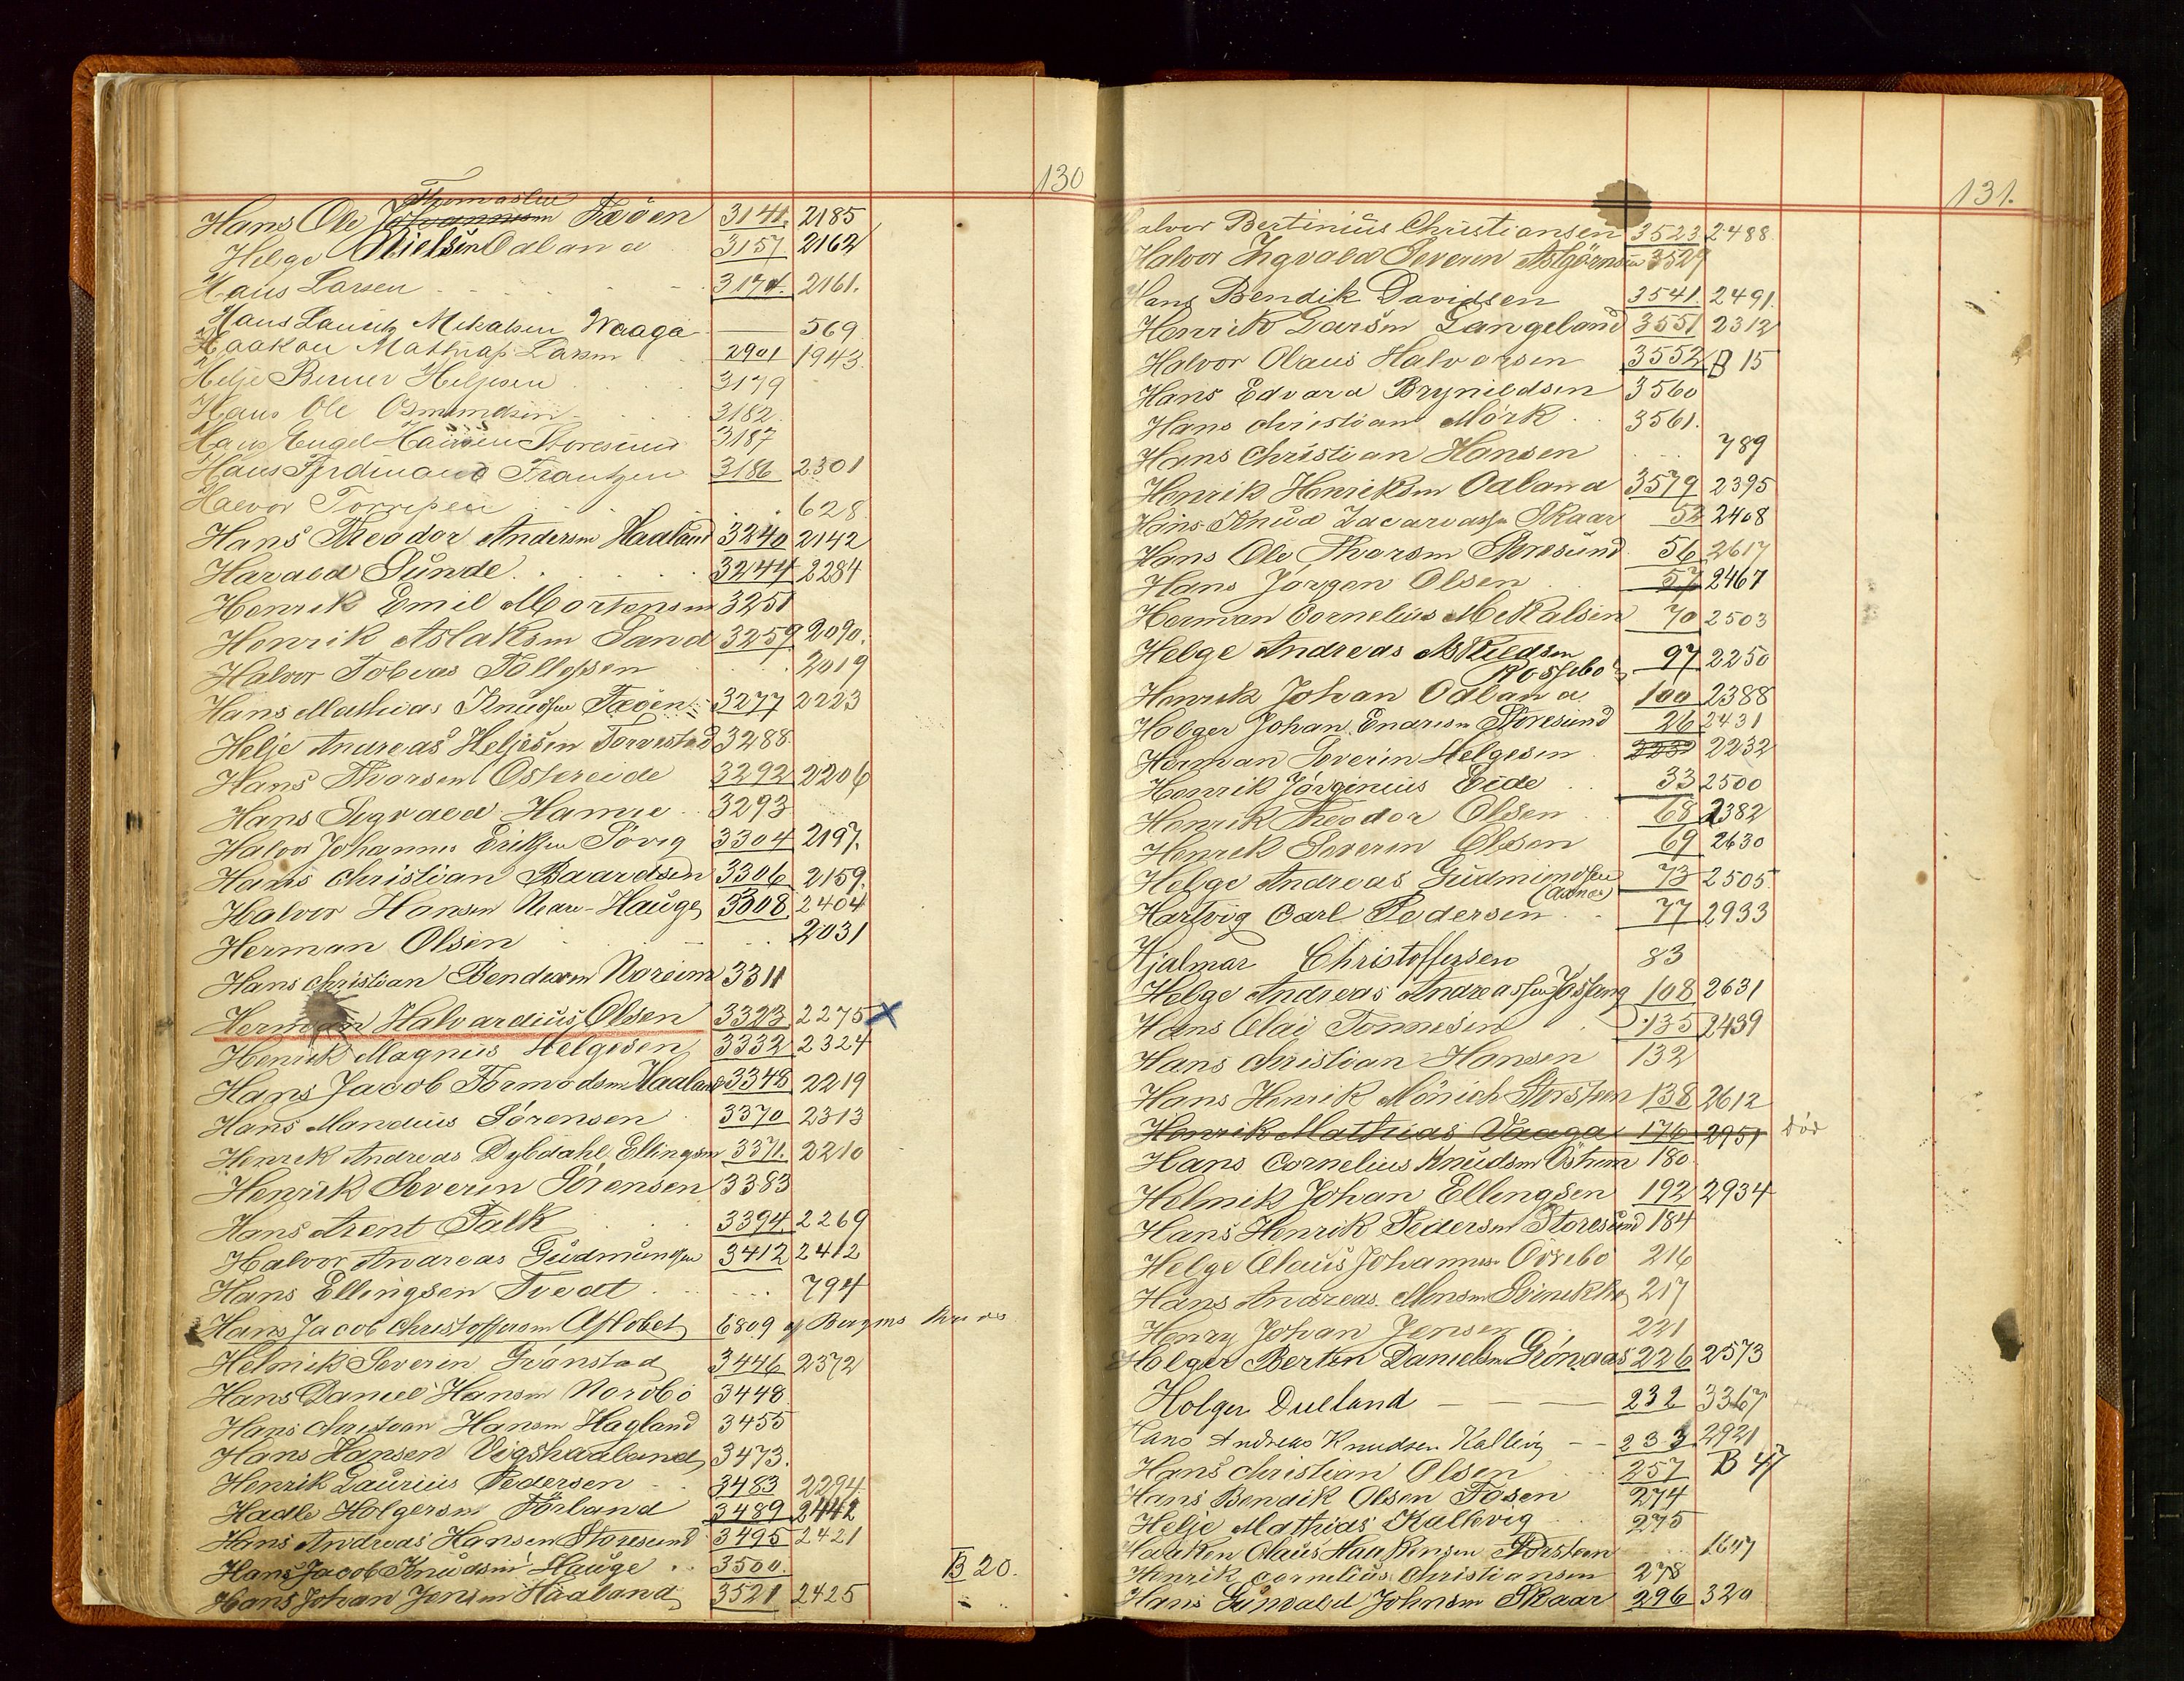 130
Thomassen
Hans Ole Johannesen Fæöen 3141. 2185
Helge Nielsen Odland 3157 2162
Hans Larsen 3174. 2161.
Hans Lauritz Mikalsen Waaga 569
Haakon Mathias Larsen 2901 1943.
Helje Berner Heljesen 3179
Hans Ole Osmundsen 3182.
Hans Engel Hansen Storesund 3187
Hans Ferdinand Frantzen 3186 2301
Halvor Torresen 628
Hans Theodor Andersen Haaland 3240 2142
Harald Sunde 3244 2284
Henrik Emil Mortensen 3251
Henrik Aslaksen Sand 3259 2090.
Halvor Tobias Tollefsen 2019
Hans Mathias Knudsen Fæöen 3277 2223
Helje Andreas Heljesen Torvestad 3288
Hans Thorsen Östereide 3292 2206
Hans Sigvald Hamre 3293
Halvor Johannes Eriksen Sövig 3304 2197.
Hans Christian Baardsen 3306 2159.
Halvor Hansen Nedre-Hauge 3308 2404
Herman Olsen 2031
Hans Christian Bendixen Noreim 3311
Herman Halvardius Olsen 3323 2275 X
Henrik Magnus Helgesen 3332 2324
Hans Jacob Tormodsen Haaland 3348 2219
Hans Mandius Sörensen 3370 2313
Henrik Andreas Dybdahl Ellingsen 3371. 2210
Henrik Severin Sörensen 3383
Hans Arent Falk 3394 2269
Halvor Andreas Gudmundsen 3412 2412
Hans Ellingsen Tvedt 794
Hans Jacob Christoffersen Afløbet 6809 af Bergens Kreds
Helmik Severin Grönstad 3446 2372
Hans Daniel Hansen Nordbö 3448
Hans Christian Hansen Hagland 3455
Hans Hansen Vigshaaland 3473.
Henrik Laurius Pedersen 3483 2294
Hadle Holgersen Förland 3489 2442
Hans Andreas Hansen Storesund 3495 2421
Hans Jacob Knudsen Hauge 3500. B 20.
Hans Johan Jensen Haaland 3521 2425
131.
Halvor Bertinius Christiansen 3523 2488
Halvor Ingvald Severin Asbjörnsen 3527
Hans Bendik Davidsen 3541. 2491.
Henrik Larsen Langeland 3551 2312
Halvor Olaus Halvorsen 3552 B 15
Hans Edvard Brynildsen 3560
Hans Christian Mörk 3561.
Hans Christian Hansen 789
Henrik Henriksen Odland 3579 2395
Hans Knud Zacariassen Skaar 52 2408
Hans Ole Thorsen Storesund 56 2617
Hans Jörgen Olsen 57 2467
Herman Cornelius Mikalsen 70 2503
Helge Andreas Askildsen
Rossebö 97 2250
Henrik Johan Odland 100 2388
Holger Johan Enarsen Storesund 26 2431
Herman Severin Helgesen 2232 2232
Henrik Jörginius Eide 33 2500
Henrik Theodor Olsen 68 2382
Henrik Severin Olsen 69 2630
Helge Andreas Gudmundsen 73 2505
(Aanes)
Hartvig Carl Pedersen 77 2933
Hjalmar Christoffersen 83
Helge Andreas Andreassen Jössang 108 2631
Hans Olai Tönnesen 135 2439
Hans Christian Hansen 132
Hans Henrik Mönich Storsteen 138 2612
Henrik Mathias Vaaga 176 2951 död
Hans Cornelius Knudsen Östrem 180
Helmik Johan Ellingsen 192 2934
Hans Henrik Pedersen Storesund 184
Helge Olaus Johannesen Övrebö 216
Hans Andreas Monsen 217
Henry Johan Jensen 221
Holger Bertin Danielsen Grönaas 226 2573
Holger Duelland 232 3367
Hans Andreas Knudsen Kallevig 233 2921
Hans Christian Olsen 257 B 47
Hans Bendik Olsen Fosen 274
Helje Mathias Kallevig 275
Haaken Olaus Haakensen Storsteen 1647
Henrik Cornelius Christiansen 278
Hans Gunvald Johnsen Skaar 296 320